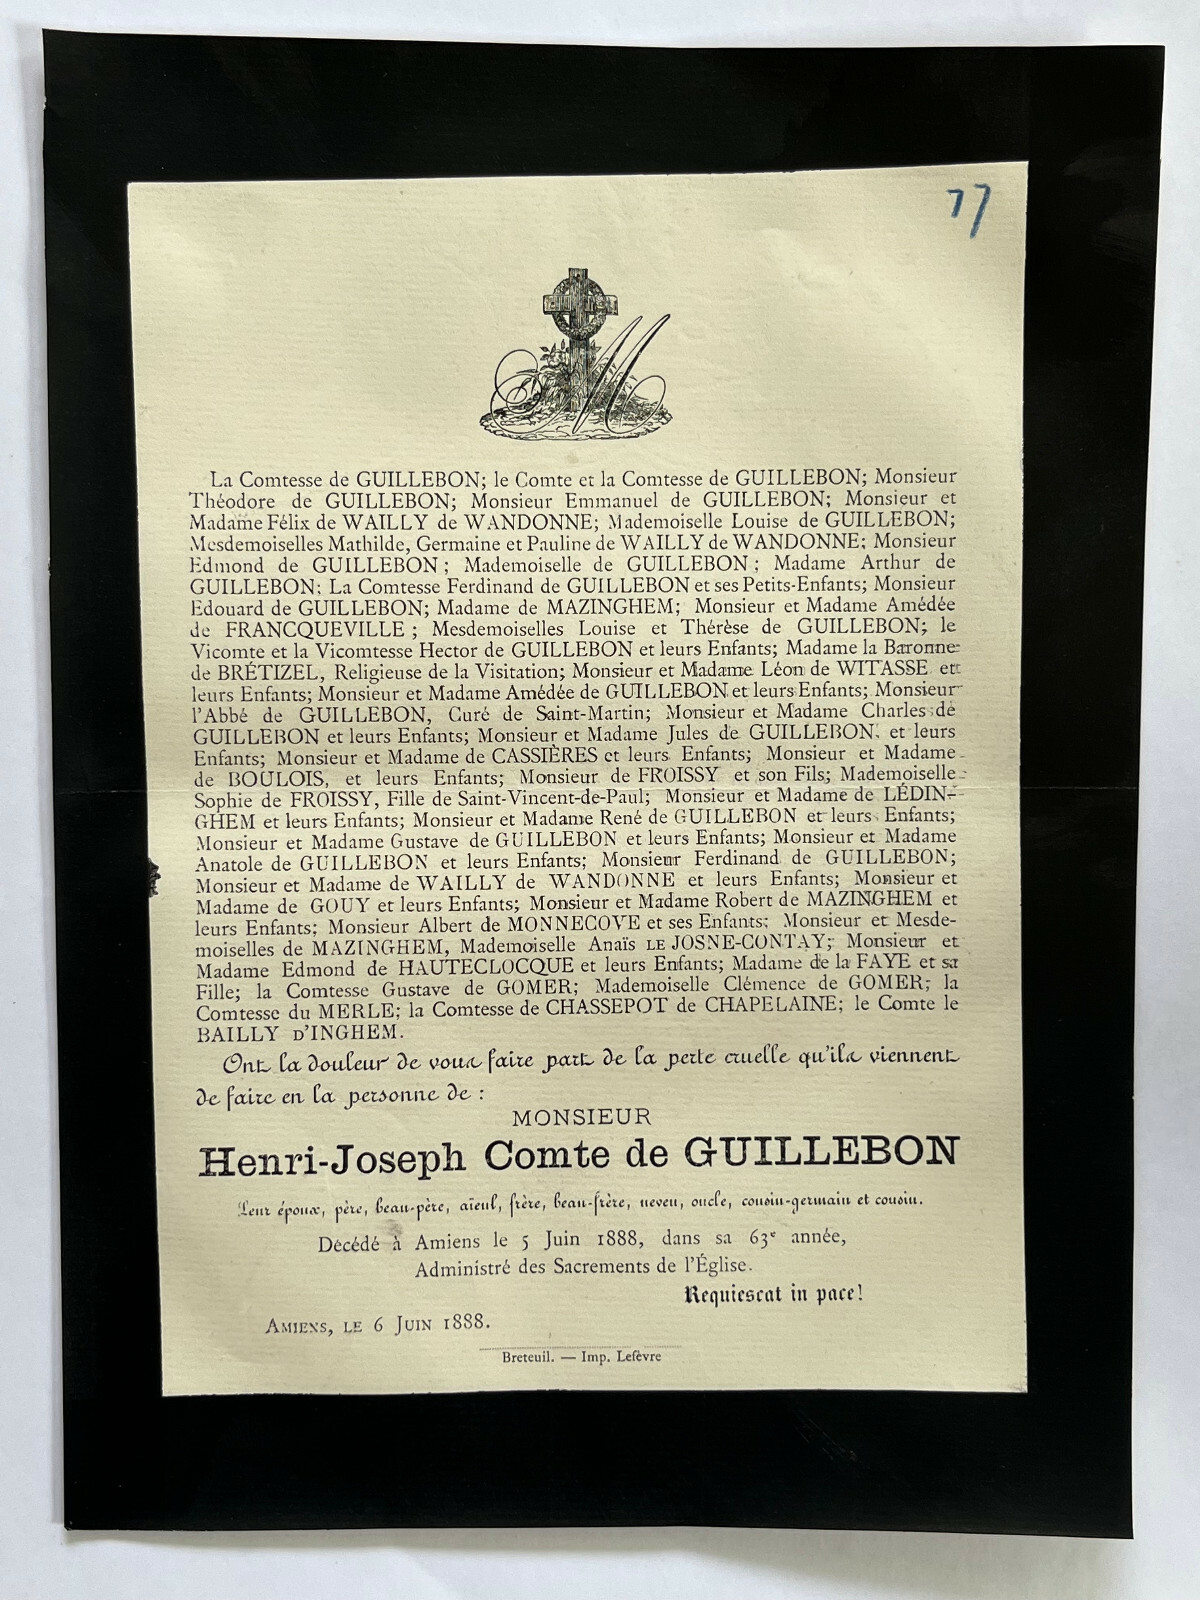 77
M
La Comtesse de GUILLEBON; le Comte et la Comtesse de GUILLEBON; Monsieur
Théodore de GUILLEBON; Monsieur Emmanuel de GUILLEBON; Monsieur et
Madame Félix de WAILLY de WANDONNE; Mademoiselle Louise de GUILLEBON;
Mesdemoiselles Mathilde, Germaine et Pauline de WAILLY de WANDONNE; Monsieur
Edmond de GUILLEBON; Mademoiselle de GUILLEBON; Madame Arthur de
GUILLEBON; La Comtesse Ferdinand de GUILLEBON et ses Petits-Enfants; Monsieur
Edouard de GUILLEBON; Madame de MAZINGHEM; Monsieur et Madame Amédée
de FRANCQUEVILLE; Mesdemoiselles Louise et Thérèse de GUILLEBON; le
Vicomte et la Vicomtesse Hector de GUILLEBON et leurs Enfants; Madame la Baronne
de BRÉTIZEL, Religieuse de la Visitation; Monsieur et Madame Léon de WITASSE et
leurs Enfants; Monsieur et Madame Amédée de GUILLEBON et leurs Enfants; Monsieur
l'Abbé de GUILLEBON, Curé de Saint-Martin; Monsieur et Madame Charles de
GUILLEBON et leurs Enfants; Monsieur et Madame Jules de GUILLEBON, et leurs
Enfants; Monsieur et Madame de CASSIÈRES et leurs Enfants; Monsieur et Madame
de BOULOIS, et leurs Enfants; Monsieur de FROISSY et son Fils; Mademoiselle
Sophie de FROISSY, Fille de Saint-Vincent-de-Paul; Monsieur et Madame de LÉDIN-
GHEM et leurs Enfants; Monsieur et Madame René de GUILLEBON et leurs Enfants;
Monsieur et Madame Gustave de GUILLEBON et leurs Enfants; Monsieur et Madame
Anatole de GUILLEBON et leurs Enfants; Monsieur Ferdinand de GUILLEBON;
Monsieur et Madame de WAILLY de WANDONNE et leurs Enfants; Monsieur et
Madame de GOUY et leurs Enfants; Monsieur et Madame Robert de MAZINGHEM et
leurs Enfants; Monsieur Albert de MONNECOVE et ses Enfants; Monsieur et Mesde-
moiselles de MAZINGHEM, Mademoiselle Anaïs LE JOSNE-CONTAY; Monsieur et
Madame Edmond de HAUTECLOCQUE et leurs Enfants; Madame de la FAYE et sa
Fille; la Comtesse Gustave de GOMER; Mademoiselle Clémence de GOMER; la
Comtesse du MERLE; la Comtesse de CHASSEPOT de CHAPELAINE; le Comte le
BAILLY D'INGHEM.
Ont la douleur de vous faire part de la perte cruelle qu'ils viennent
de faire en la personne de :
MONSIEUR
Henri-Joseph Comte de GUILLEBON
Leur époux, père, beau-père, aïeul, frère, beau-frère, neveu, oncle, cousin-germain et cousin.
Décédé à Amiens le 5 Juin 1888, dans sa 63e année,
Administré des Sacrements de l'Église.
Requiescat in pace!
AMIENS, LE 6 JUIN 1888.
Breteuil. — Imp. Lefèvre